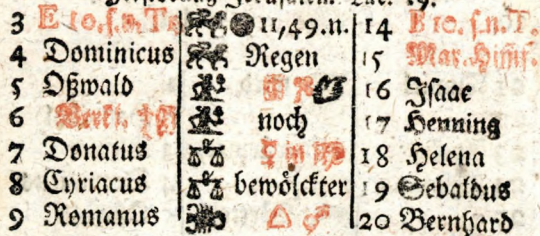 3 E 10. s. n. Tr. 11,49. n. 14 B 10. s. n. T.
4 Dominicus Regen 15 Mar. Him̃f.
5 Oßwald 16 Jsaac
6 Verkl. noch 17 Henning
7 Donatus ♀ in 18 Helena
8 Cyriacus bewölckter 19 Sebaldus
9 Romanus △ ♂ 20 Bernhard